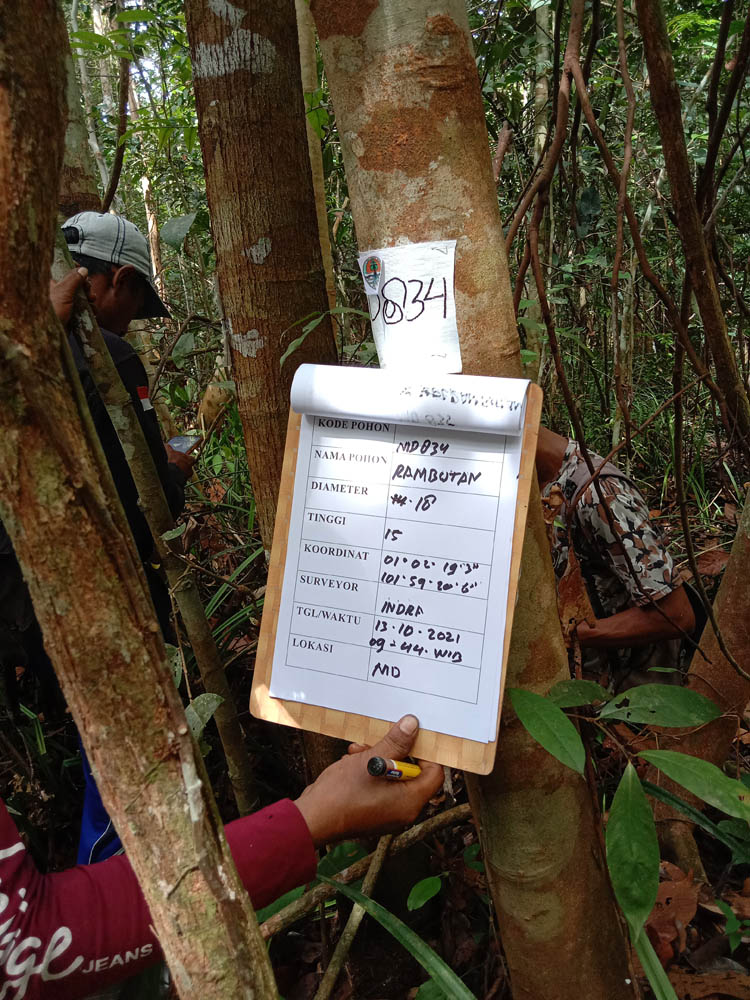 0834
KODE POHON MD834
NAMA POHON RAMBUTAN
DIAMETER 18
TINGGI 15
KOORDINAT 01.02.19.3"
101.59.20.6"
SURVEYOR INDRA
TGL/WAKTU 13.10.2021
09:44.WIB
LOKASI MD
JEANS